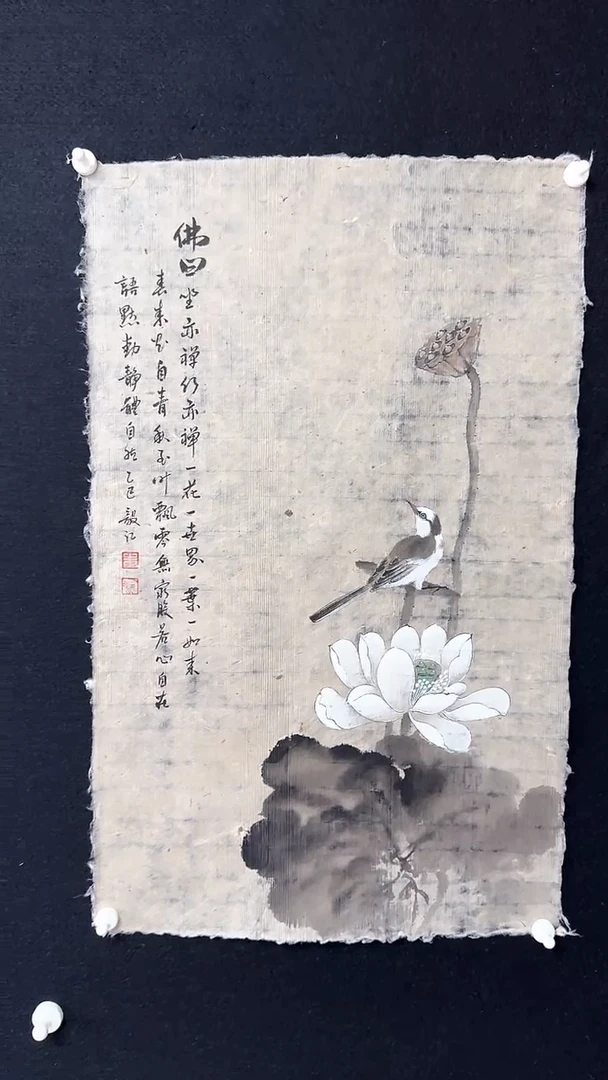 佛曰坐亦禅行亦禅一花一世界一葉一如来
春来花自青秋至叶飄零無窮般若心自在
語默動静體自然乙巳毅江